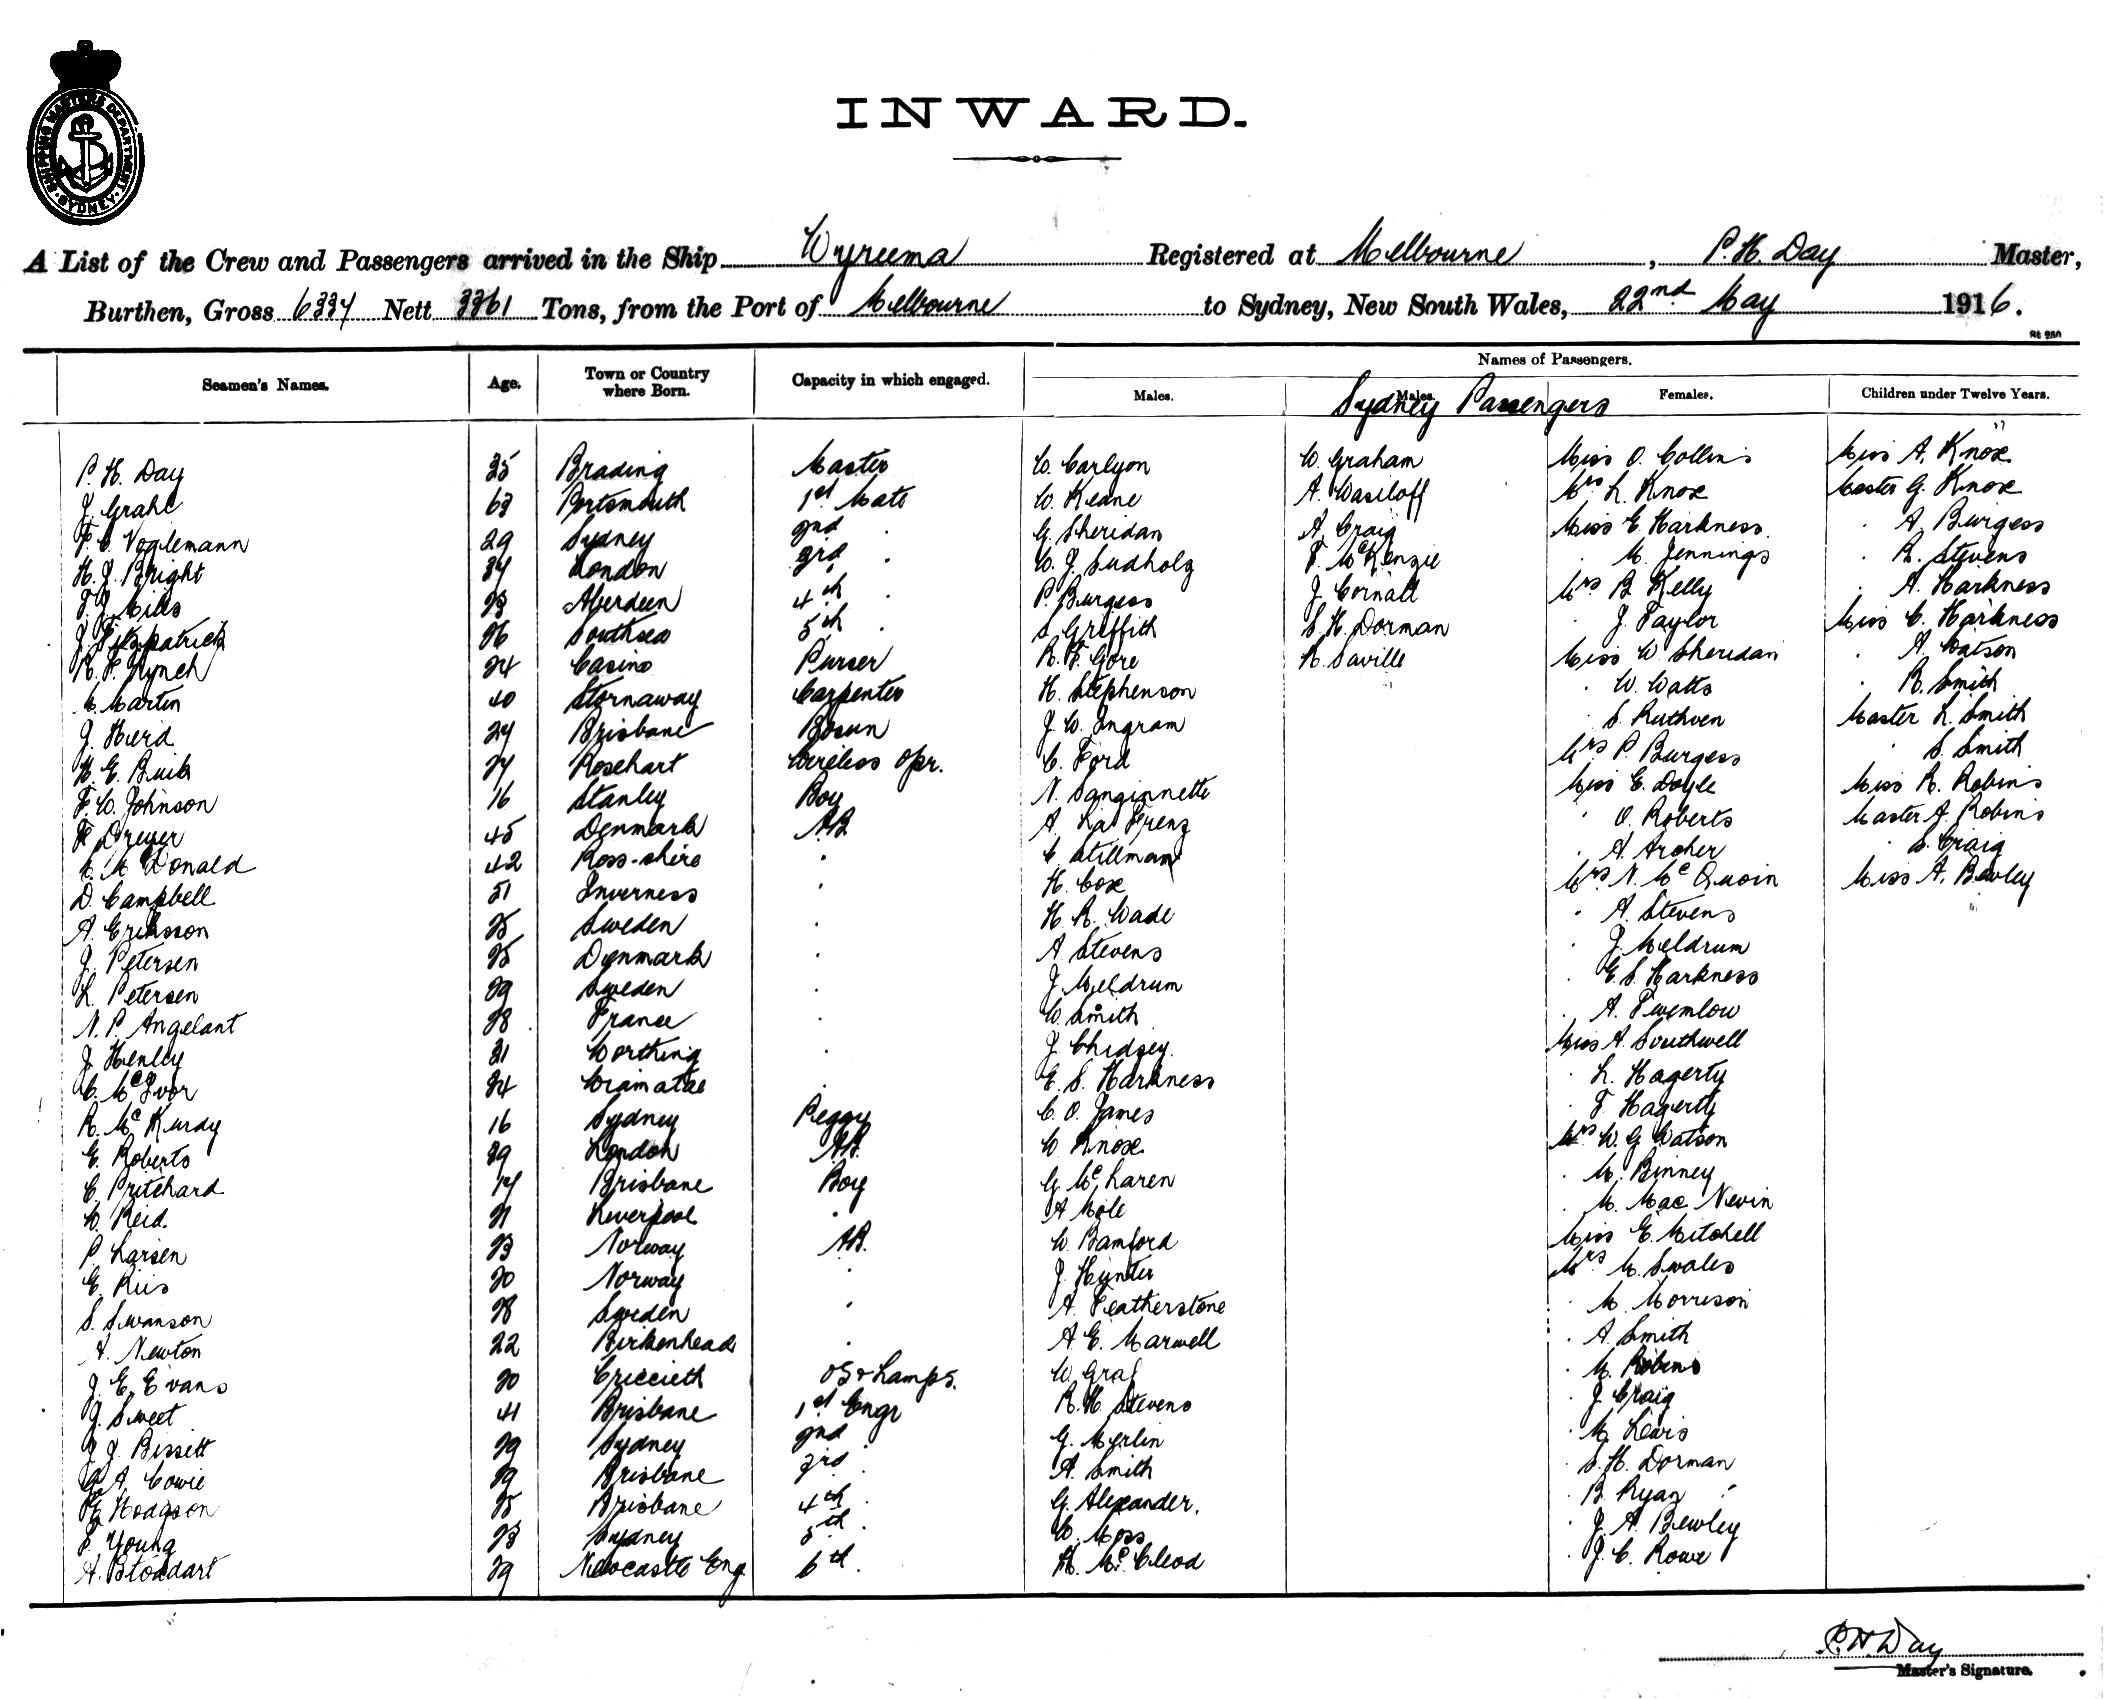 SHIPPING MASTERS DEPARTMENT · SYDNEY ·
INWARD.
A List of the Crew and Passengers arrived in the Ship Wyreema Registered at Melbourne, P. H. Day Master,
Burthen, Gross 6334 Nett 3361 Tons, from the Port of Melbourne to Sydney, New South Wales, 22nd May 1916.
Seamen's Names. Age. Town or Country where Born. Capacity in which engaged. Names of Passengers.
Males. Males. Females. Children under Twelve Years.
Sydney Passengers
P. H. Day 35 Brading Master W. Carlyon W. Graham Miss O. Collins Miss A. Knox
J. Grahl 63 Portsmouth 1st Mate W. Keane A. Wasiloff Mrs L. Knox Master G. Knox
F. C. Voglemann 29 Sydney 2nd " G. Sheridan A. Craig Miss E. Harkness " A. Burgess
H. J. Bright 34 London 3rd " W. J. Sudholz F. McKenzie " M. Jennings " R. Stevens
J. Mills 23 Aberdeen 4th " P. Burgess J. Cornall Mrs B. Kelly " A. Harkness
J. Fitzpatrick 26 Southsea 5th " S. Griffith S. H. Dorman " J. Taylor Miss C. Harkness
R. F. Lynch 24 Casino Purser R. F. Gore R. Saville Miss W. Sheridan " A. Watson
M. Martin 40 Stornaway Carpenter H. Stephenson " W. Watts " R. Smith
J. Hurd 24 Brisbane Bosun J. W. Ingram " S. Ruthven Master L. Smith
H. E. Buik 24 Rosehart Wireless Opr. C. Ford Mrs P. Burgess " S. Smith
F. W. Johnson 16 Stanley Boy N. Sanginnette Miss E. Doyle Miss R. Robins
F. Dreyer 45 Denmark AB A. La Frenz " O. Roberts Master J. Robins
M. McDonald 42 Ross-shire " C. Stillman " A. Archer " S. Craig
D. Campbell 51 Inverness " H. Cox Mrs N. McQuoin Miss A. Bewley
A. Eriksson 25 Sweden " H. R. Wade " A. Stevens
J. Petersen 25 Denmark " A. Stevens " J. Meldrum
L. Petersen 29 Sweden " J. Meldrum " E. S. Harkness
N. P. Angelant 28 France " W. Smith " A. Twemlow
J. Henley 21 Worthing " J. Chidzey Miss A. Southwell
C. McIvor 24 " E. S. Harkness " L. Hagerty
R. McKurdy 16 Sydney Peggy C. O. James " F. Hagerty
E. Roberts 29 London AB. W. Knox Mrs W. G. Watson
C. Pritchard 17 Brisbane Boy G. McLaren " M. Binney
W. Reid. 21 Liverpool " A. Mole " M. Mac Nevin
P. Larsen 23 Norway AB. W. Bamford Miss E. Mitchell
E. Riis 20 Norway " J. Hunter Mrs M. Swales
S. Swanson 28 Sweden " A. Featherstone " M. Morrison
A. Newton 22 Birkenhead " A. E. Marwell " A. Smith
J. E. Evans 20 Criccieth OS & Lamps. W. Graf " M. Robins
J. Sweet 41 Brisbane 1st Engr R. H. Stevens " J. Craig
J. J. Bissett 29 Sydney 2nd G. Merlin " M. Lewis
G. A. Cowie 29 Brisbane 3rd " A. Smith " S. H. Dorman
E. Hodgson 25 Brisbane 4th " G. Alexander. " B. Ryan
F. Young 23 Sydney 5th " W. Moss " J. A. Bewley
A. Stoddart 29 Newcastle Eng. 6th. H. McCleod " J. C. Rowe
P. H. Day
Master's Signature.